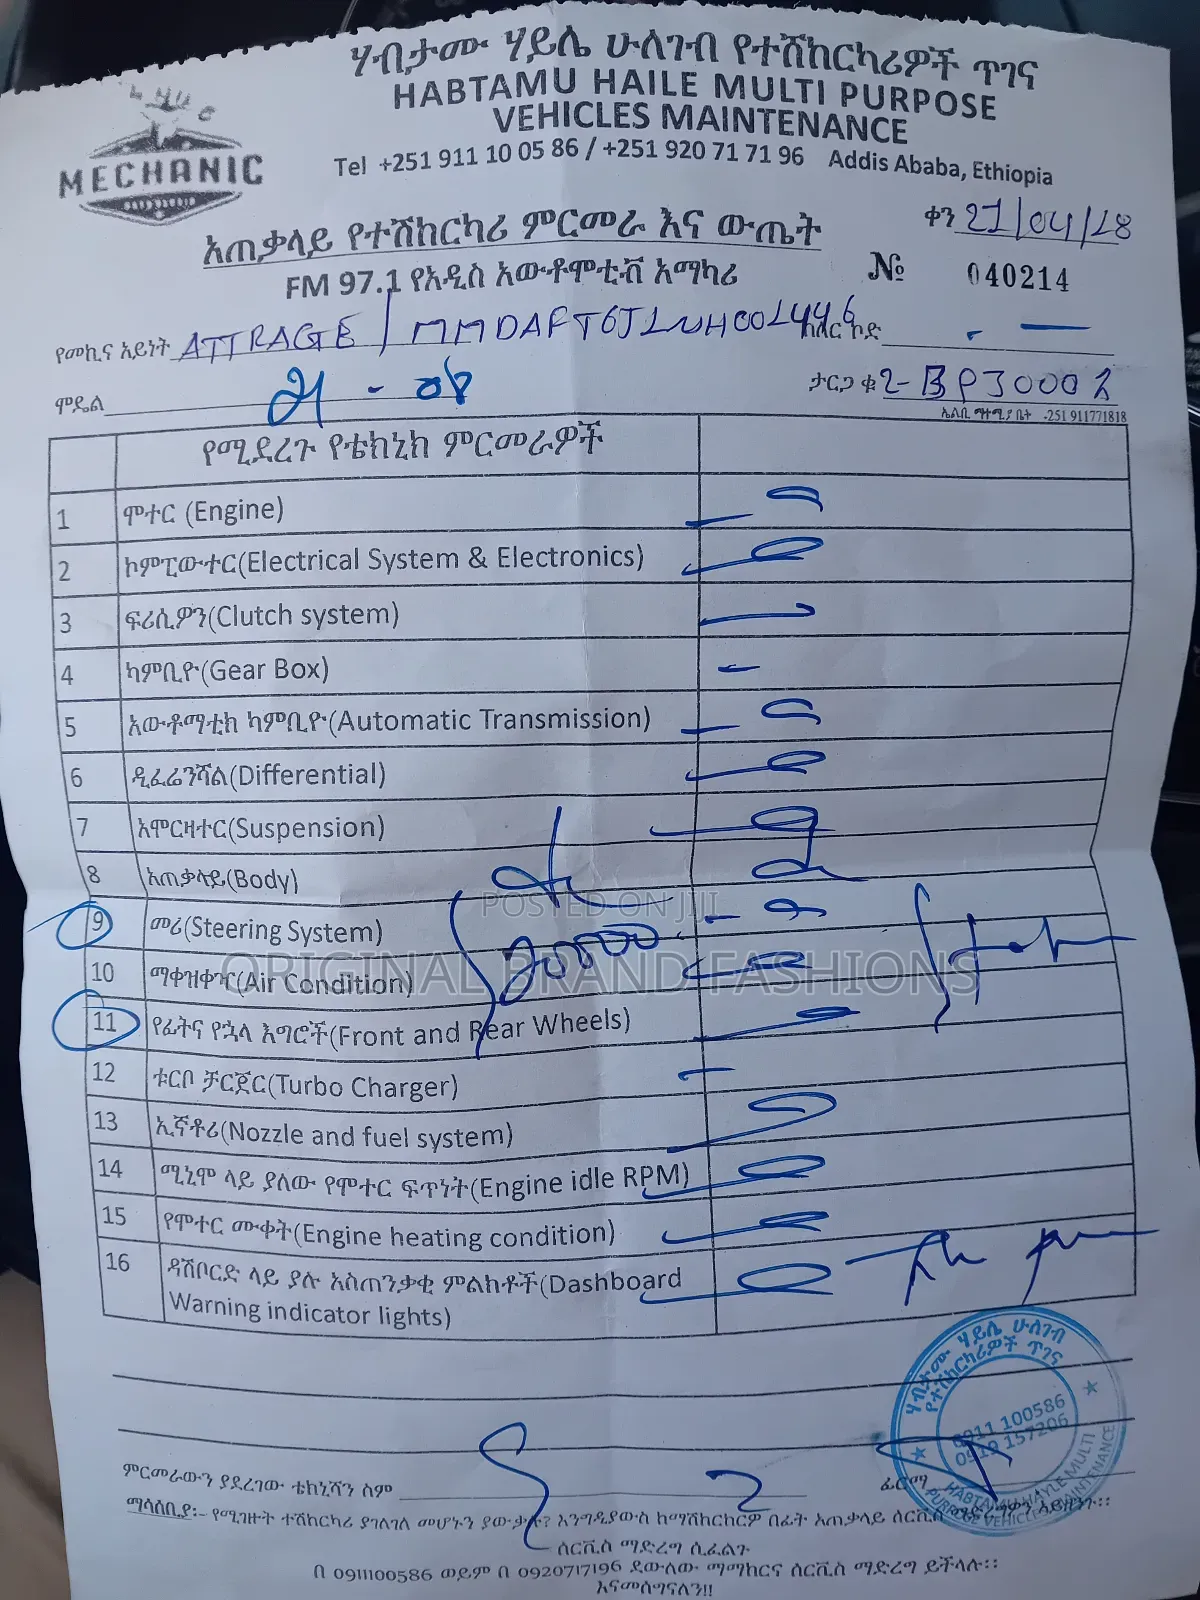 ሃብታሙ ሃይሌ ሁለገብ የተሽከርካሪዎች ጥገና
HABTAMU HAILE MULTI PURPOSE
VEHICLES MAINTENANCE
MECHANIC
Tel +251 911 10 05 86 / +251 920 71 71 96 Addis Ababa, Ethiopia
ቀን 21/04/18
አጠቃላይ የተሽከርካሪ ምርመራ እና ውጤት
№ 040214
FM 97.1 የአዲስ አውቶሞቲቭ አማካሪ
የመኪና አይነት ATTRAGE /
ሞዴል
ታርጋ ቁ 2-
-251 911771818
የሚደረጉ የቴክኒክ ምርመራዎች
1 ሞተር (Engine)
2 ኮምፒውተር(Electrical System & Electronics)
3 ፍሪሲዎን(Clutch system)
4 ካምቢዮ(Gear Box)
5 አውቶማቲክ ካምቢዮ(Automatic Transmission)
6 ዲፈሬንሻል(Differential)
7 አሞርዛተር(Suspension)
8 አጠቃላይ(Body)
POSTED ON JIJI
9 መሪ(Steering System)
20000
ORIGINAL BRAND FASHIONS
10 ማቀዝቀዣ(Air Condition)
11 የፊትና የኋላ እግሮች(Front and Rear Wheels)
12 ቱርቦ ቻርጀር(Turbo Charger)
13 ኢኛቶሪ(Nozzle and fuel system)
14 ሚኒሞ ላይ ያለው የሞተር ፍጥነት(Engine idle RPM)
15 የሞተር ሙቀት(Engine heating condition)
16 ዳሽቦርድ ላይ ያሉ አስጠንቃቂ ምልክቶች(Dashboard
Warning indicator lights)
ሃብታሙ ሃይሌ ሁለገብ
የተሽከርካሪዎች ጥገና
0911 100586
HABTAMU HAYLE MULTI
PURPOSE VEHICLES MAINTENANCE
ምርመራውን ያደረገው ቴክኒሻን ስም
ፊርማ
ማሳሰቢያ:- የሚገዙት ተሽከርካሪ ያገለገለ መሆኑን ያውቃሉ? እንግዲያውስ ከማሽከርከርዎ በፊት አጠቃላይ ሰርቪስ
ሰርቪስ ማድረግ ሲፈልጉ
በ 0911100586 ወይም በ 0920717196 ደውለው ማማከርና ሰርቪስ ማድረግ ይችላሉ።
እናመሰግናለን!!